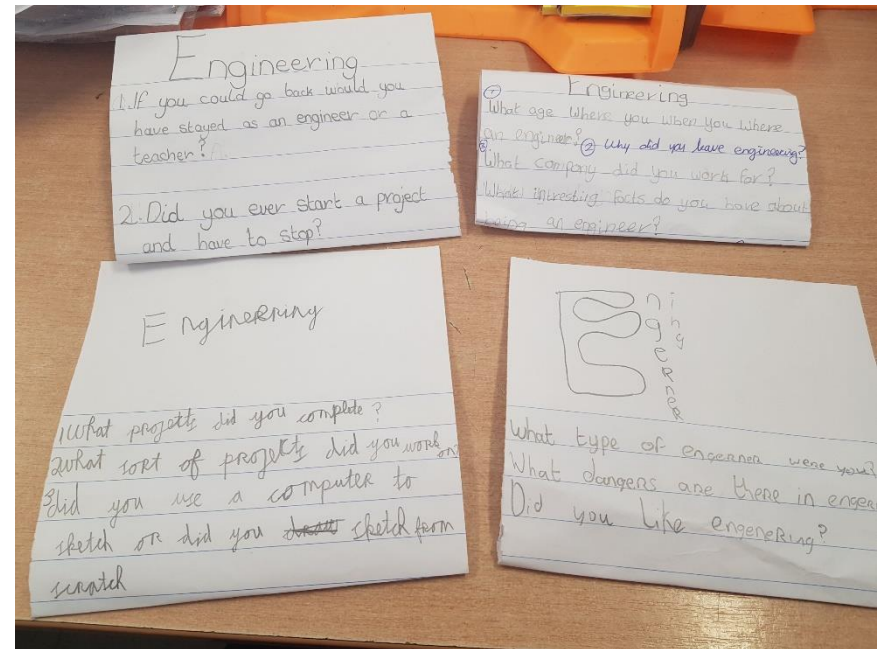 Engineering
1. If you could go back would you
have stayed as an engineer or a
teacher?
2. Did you ever start a project
and have to stop?
Engineering
①
What age where you when you where
an engineer? ② Why did you leave engineering?
③
What company did you work for?
What intresting facts do you have about
being an engineer?
Engineering
1 What projetts did you complete?
2 what sort of projekts did you work on
3 did you use a computer to
sketch or did you sketch from
scratch
Engerner
ing
What type of engerner were you?
What dangers are there in enger
Did you like engeneRing?